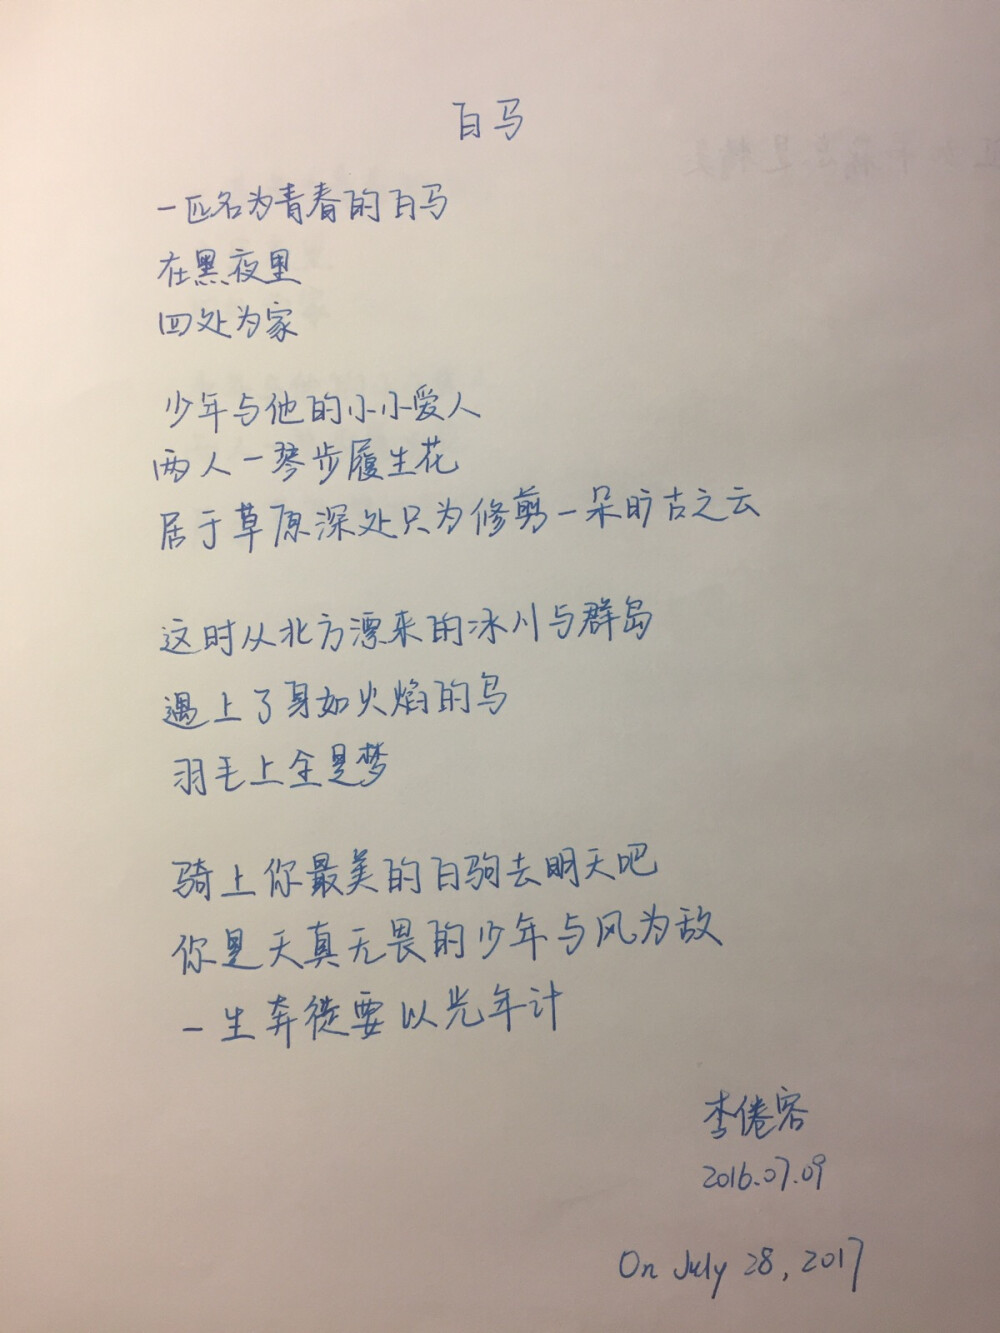 白马
一匹名为青春的白马
在黑夜里
四处为家
少年与他的小小爱人
两人一琴步履生花
居于草原深处只为修剪一朵旷古之云
这时从北方漂来的冰川与群岛
遇上了身如火焰的鸟
羽毛上全是梦
骑上你最美的白驹去明天吧
你是天真无畏的少年与风为敌
一生奔徙要以光年计
李倦容
2016.07.09
On July 28, 2017